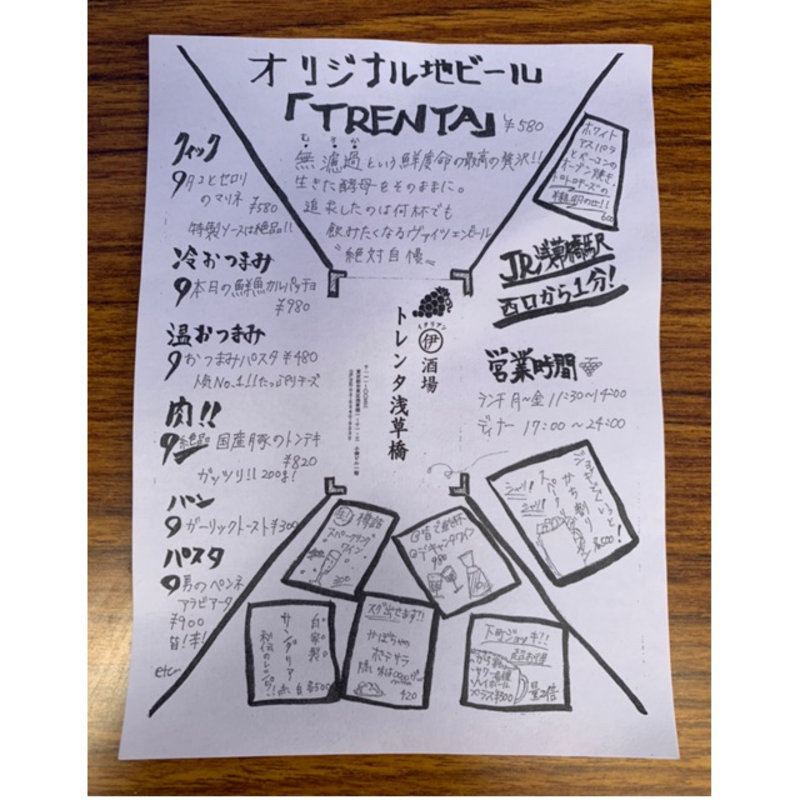 オリジナル地ビール
「TRENTA」 ¥580
むろか
無濾過という鮮度命の最高の贅沢!!
生きた酵母をそのままに。
追求したのは何杯でも
飲みたくなるヴァイツェンビール
"絶対自慢"
クイック
タコとセロリ
のマリネ
¥580
特製ソースは絶品!!
冷おつまみ
本日の鮮魚カルパッチョ
¥980
温おつまみ
おつまみパスタ ¥480
人気No.1!!たっぷりチーズ
肉!!
絶品 国産豚のトンテキ
¥820
ガッツリ!! 200g!
パン
ガーリックトースト ¥300
パスタ
男のペンネ
アラビアータ
¥900
旨!辛!
etc
ホワイト
アスパラ
とベーコンの
オーブン焼き
トロトロチーズの
600
JR浅草橋駅
西口から1分!
イタリアン
伊 酒場
トレンタ浅草橋
営業時間
ランチ 月〜金 11:30〜14:00
ディナー 17:00〜24:00
ジョッキでぐいっと!
かち割り
スパークリング
シャリ!
シャリ!
¥500
生 樽詰
スパークリング
ワイン
300
皆で乾杯
デキャンタワイン
980
自家製
サングリア
秘伝のレシピ!!
赤 白 各500
スグ出せます!!
かぼちゃの
ポテサラ
420
下町ジョッキ!!
超お得
量2倍